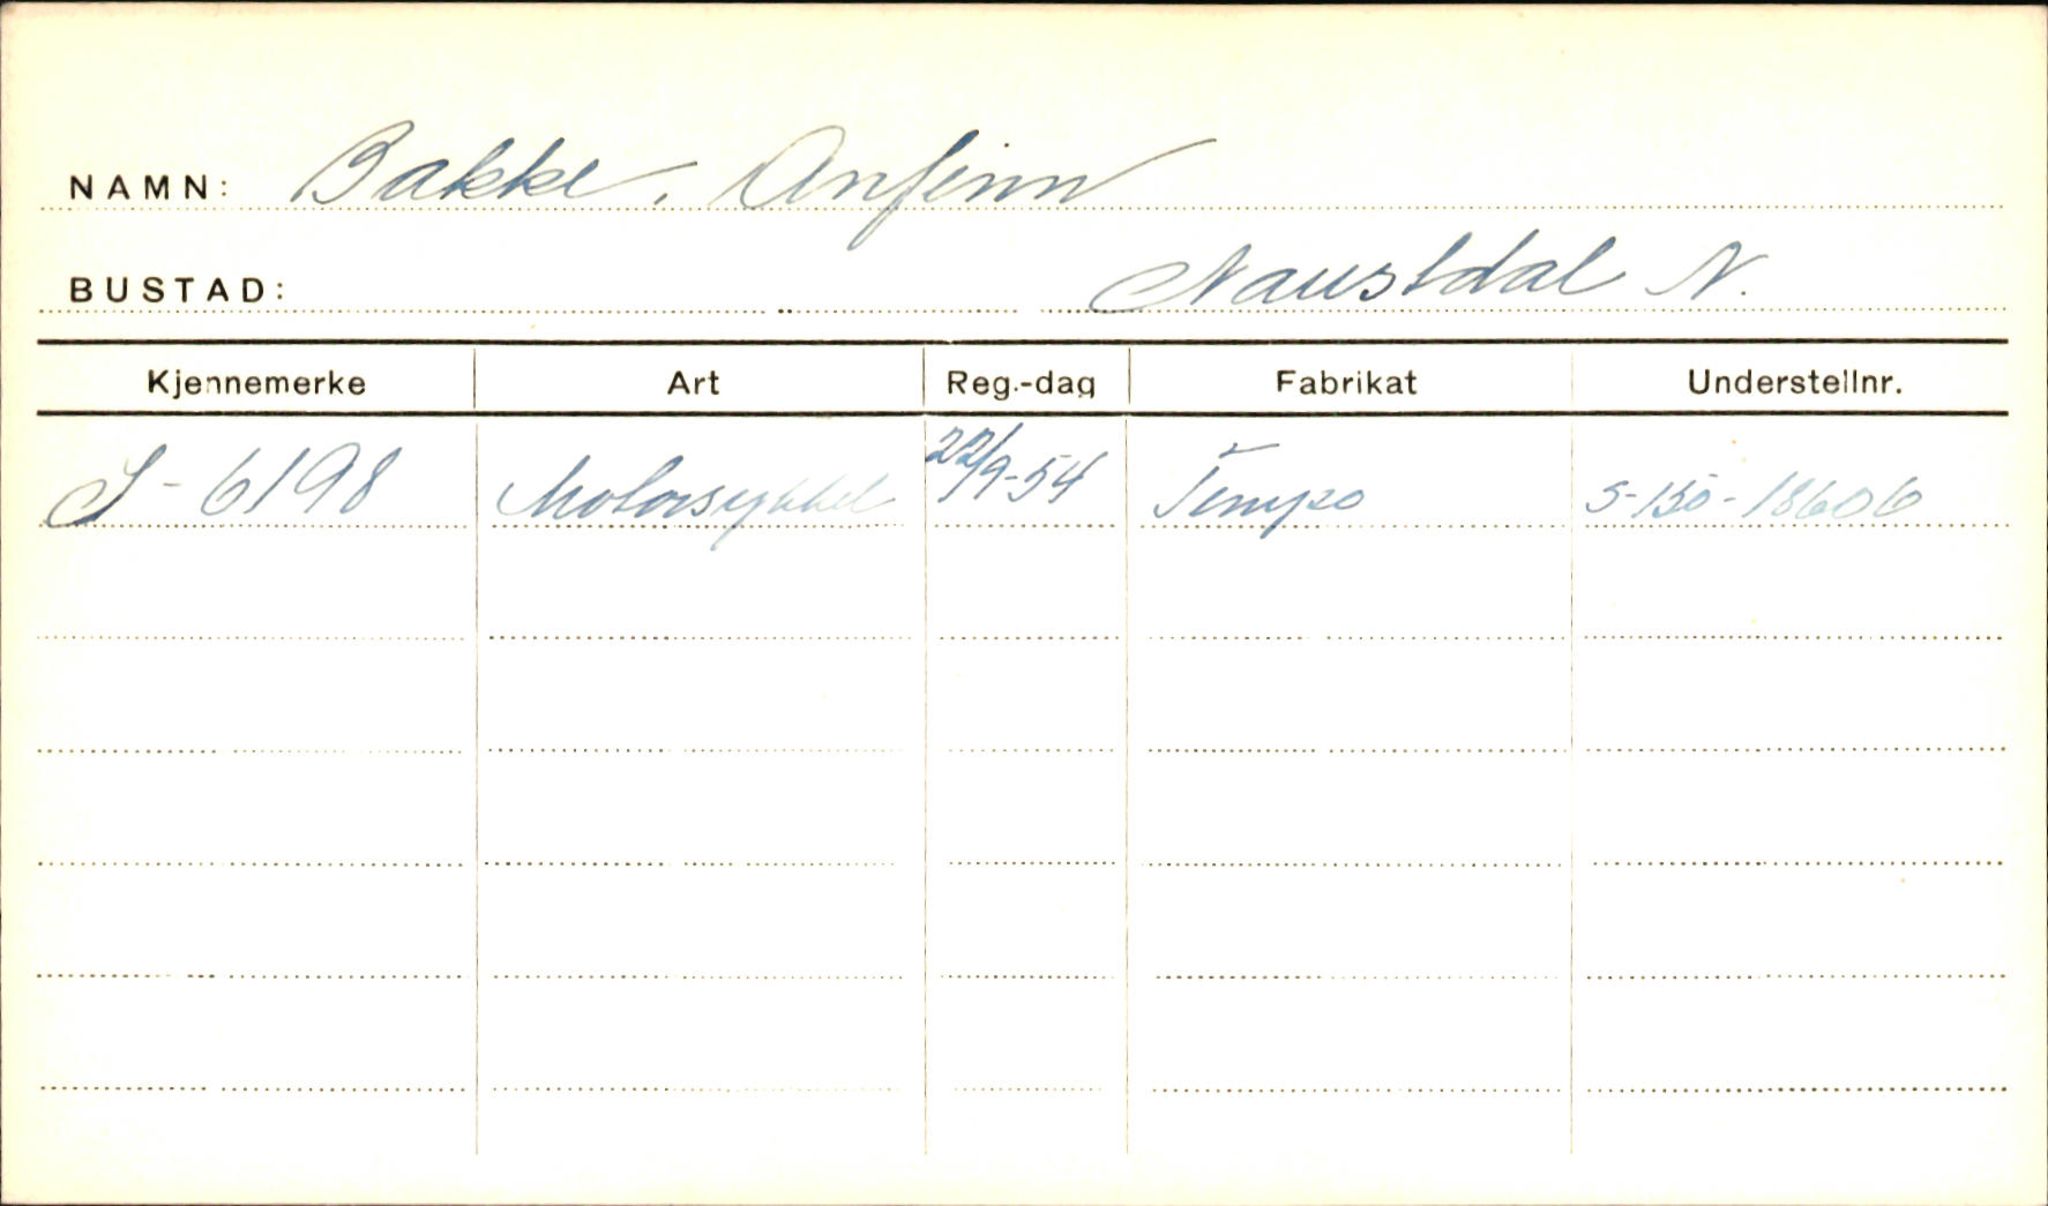 NAMN: Bakke, Anfinn
BUSTAD: Naustdal N.
Kjennemerke Art Reg.-dag Fabrikat Understellnr.
S-6198 Motorsykkel 22/9-54 Tempo S-150-18606